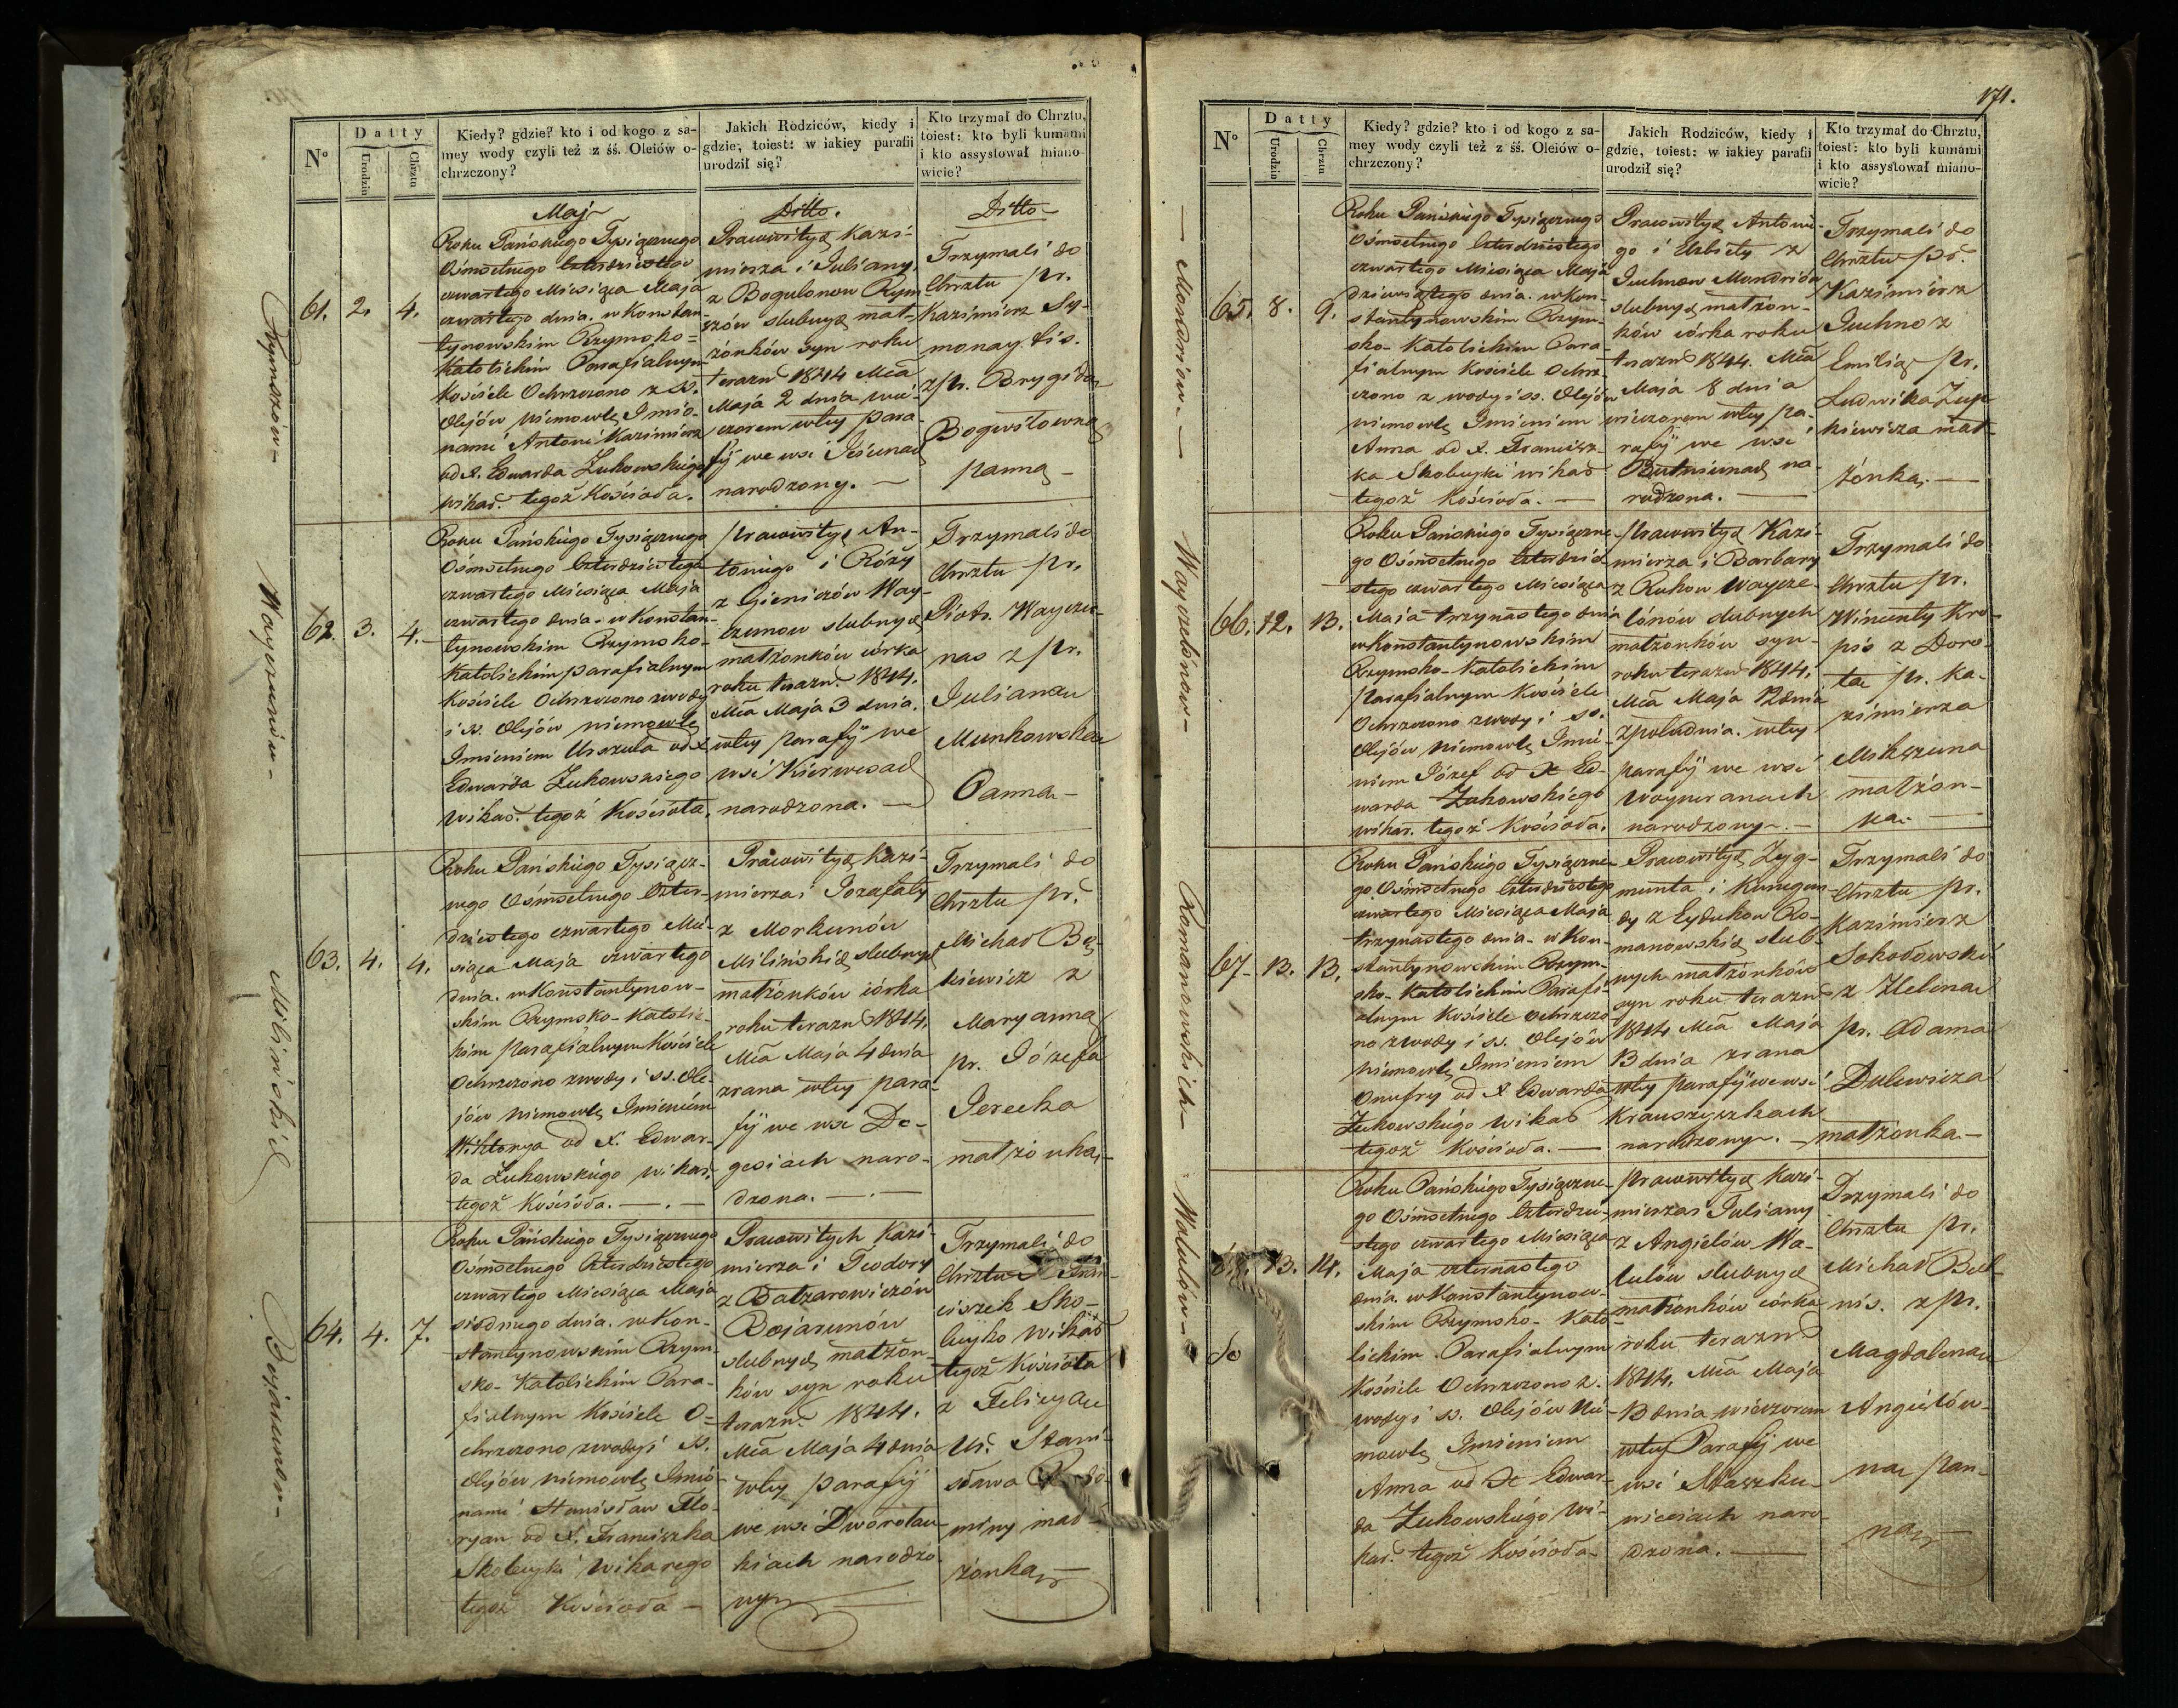 171.
Nº
Datty
Urodzin
Chrztu
Kiedy? gdzie? kto i od kogo z sa-
mey wody czyli też z śś. Oleiów o-
chrzczony?
Jakich Rodziców, kiedy i
gdzie, toiest: w iakiey parafii
urodził się?
Kto trzymał do Chrztu,
toiest: kto byli kumami
i kto assystował miano-
wicie?
Maj
Ditto.
Ditto
61. 2. 4.
Roku Pańskiego Tysiącznego
Ośmsetnego Czterdziestego
czwartego Miesiąca Maja
czwartego dnia. w Konstan-
tynowskim Rzymsko=
Katolickim Parafialnym
Kościele Ochrzczono z SS.
Olejów niemowlę Imio-
nami Antoni Kazimierz
od X. Edwarda Żukowskiego
wikar. tegoż Kościoła.
Pracowitych Kazi-
mierza i Juliany
z Bogulonow Rym-
szów slubnych mał-
żonków syn roku
terazn. 1844 Mca
Maja 2 dnia wie-
czorem w tey para
fij we wsi
narodzony.
Trzymali do
Chrztu pr.
Kazimierz Sy-
monaytis.
z pr. Brygidą
panną
Rymszów
62. 3. 4.
Roku Pańskiego Tysiącznego
Ośmsetnego Czterdziestego
czwartego Miesiąca Maja
czwartego dnia. w Konstan-
tynowskim Rzymsko-
Katolickim parafialnym
Kościele Ochrzczono z wody
i ss. Olejów niemowlę
Imieniem Urszula od X
Edwarda Żukowskiego
wikar. tegoż Kościoła.
pracowitych An-
toniego i Róży
z Gieniczów Way-
czunow slubnych
małżonków córka
roku terazn. 1844.
Mca Maja 3 dnia.
w tey parafij we
wsi
narodzona.
Trzymali do
Chrztu pr.
Piotr Wayczu-
nas z pr.
Julianną
Munkowską
Panną
Wayczunów
63. 4. 4.
Roku Pańskiego Tysiącz-
nego Ośmsetnego Czter-
dziestego czwartego Mie-
siąca Maja czwartego
dnia. w Konstantynow-
skim Rzymsko-Katolic-
kim parafialnym Kościele
Ochrzczono z wody i ss. Ole-
jów niemowlę Imieniem
Wiktorya od X. Edwar-
da Żukowskiego wikar.
tegoż Kościoła.
Pracowitych Kazi-
mierza i Jozefaty
z Morkunów
Milińskich slubnych
małżonków córka
roku terazn. 1844.
Mca Maja 4 dnia
zrana w tey para-
fij we wsi De-
gesiach naro-
dzona.
Trzymali do
Chrztu pr.
Michał
z
Maryanną
pr. Józefa
Jerecka
małżonką
Milińskich
64. 4. 7.
Roku Pańskiego Tysiącznego
Ośmsetnego Czterdziestego
czwartego Miesiąca Maja
siodmego dnia. w Kon-
stantynowskim Rzym-
sko-Katolickim Para-
fialnym Kościele O=
chrzczono z wody i SS.
Olejów niemowlę Imio-
nami Stanisław Flo-
ryan od X. Franciszka
Skobeyki wikarego
tegoż Kościoła
Pracowitych Kazi-
mierza i Teodory
z Balzarowiczów
Bojarunów
slubnych małżon-
ków syn roku
terazn. 1844.
Mca Maja 4 dnia
w tey parafij
we wsi
narodzo-
ny
Trzymali do
Chrztu X Fran-
ciszek Sko-
beyko wikar
tegoż Kościoła
z Felicyą
Stani-
sława
mał-
żonką
Bojarunow
Nº
Datty
Urodzin
Chrztu
Kiedy? gdzie? kto i od kogo z sa-
mey wody czyli też z śś. Oleiów o-
chrzczony?
Jakich Rodziców, kiedy i
gdzie, toiest: w iakiey parafii
urodził się?
Kto trzymał do Chrztu,
toiest: kto byli kumami
i kto assystował miano-
wicie?
65. 8. 9.
Roku Pańskiego Tysiącznego
Ośmsetnego Czterdziestego
czwartego Miesiąca Maja
dziewiątego dnia. w Kon-
stantynowskim Rzym-
sko-Katolickim Para-
fialnym Kościele Ochrz-
czono z wody i ss. Olejów
niemowlę Imieniem
Anna od X. Francisz-
ka Skobeyki wikar
tegoż Kościoła.
Pracowitych Antoni-
go i Elzbiety z
Juchnow
slubnych małżon-
ków córka roku
terazn. 1844. Mca
Maja 8 dnia
wieczorem w tey pa-
rafij we wsi
Butnienach na-
rodzona.
Trzymali do
Chrztu pr.
Kazimierz
Juchno z
Emilią pr.
Ludwika
mał-
żonką.
66. 12. 13.
Roku Pańskiego Tysiączne-
go Ośmsetnego Czterdzie-
stego czwartego Miesiąca
Maja trzynastego dnia
w Konstantynowskim
Rzymsko-Katolickim
Parafialnym Kościele
Ochrzczono z wody i ss.
Olejów niemowlę Imie-
niem Józef od X Ed-
warda Żukowskiego
wikar. tegoż Kościoła.
pracowitych Kazi-
mierza i Barbary
z Rukow Waycze-
lónów slubnych
małżonków syn
roku terazn. 1844.
Mca Maja 12 dnia
z południa. w tey
parafij we wsi
Wayneranach
narodzony.
Trzymali do
Chrztu pr.
Wincenty Kro-
pis z Doro-
tą pr. Ka-
zimierza
małżon-
ką.
Wayczelónów
67. 13. 13.
Roku Pańskiego Tysiączne-
go Ośmsetnego Czterdziestego
czwartego Miesiąca Maja
trzynastego dnia w Kon-
stantynowskim Rzym-
sko-Katolickim Parafi-
alnym Kościele Ochrzczo-
no z wody i ss. Olejów
niemowlę Imieniem
Onufry od X Edwarda
Żukowskiego wikar
tegoż Kościoła.
Pracowitych Zyg-
munta i Kunegun-
dy z Eydukow Ro-
manowskich slub-
nych małżonków
syn roku terazn.
1844 Mca Maja
13 dnia zrana
w tey parafij we wsi
Krauszyszkach
narodzony.
Trzymali do
Chrztu pr.
Kazimierz
Sokołowski
z Heleną
pr. Adama
Dulewicza
małżonką
Romanowskich
68. 13. 14.
Roku Pańskiego Tysiączne-
go Ośmsetnego Czterdzie-
stego czwartego Miesiąca
Maja czternastego
dnia. w Konstantynow-
skim Rzymsko-Kato-
lickim Parafialnym
Kościele Ochrzczono z
wody i ss. Olejów Nie-
mowlę Imieniem
Anna od X Edwar-
da Żukowskiego wi-
kar. tegoż Kościoła
pracowitych Kazi-
mierza i Juliany
z Angielów Wa-
lulów slubnych
małżonków córka
roku terazn.
1844. Mca Maja
13 dnia wieczorem
w tey Parafij we
wsi Staszku-
wiciach naro-
dzona.
Trzymali do
Chrztu pr.
Michał
z pr.
Magdaleną
Angielów-
ną pan-
ną
Walulów